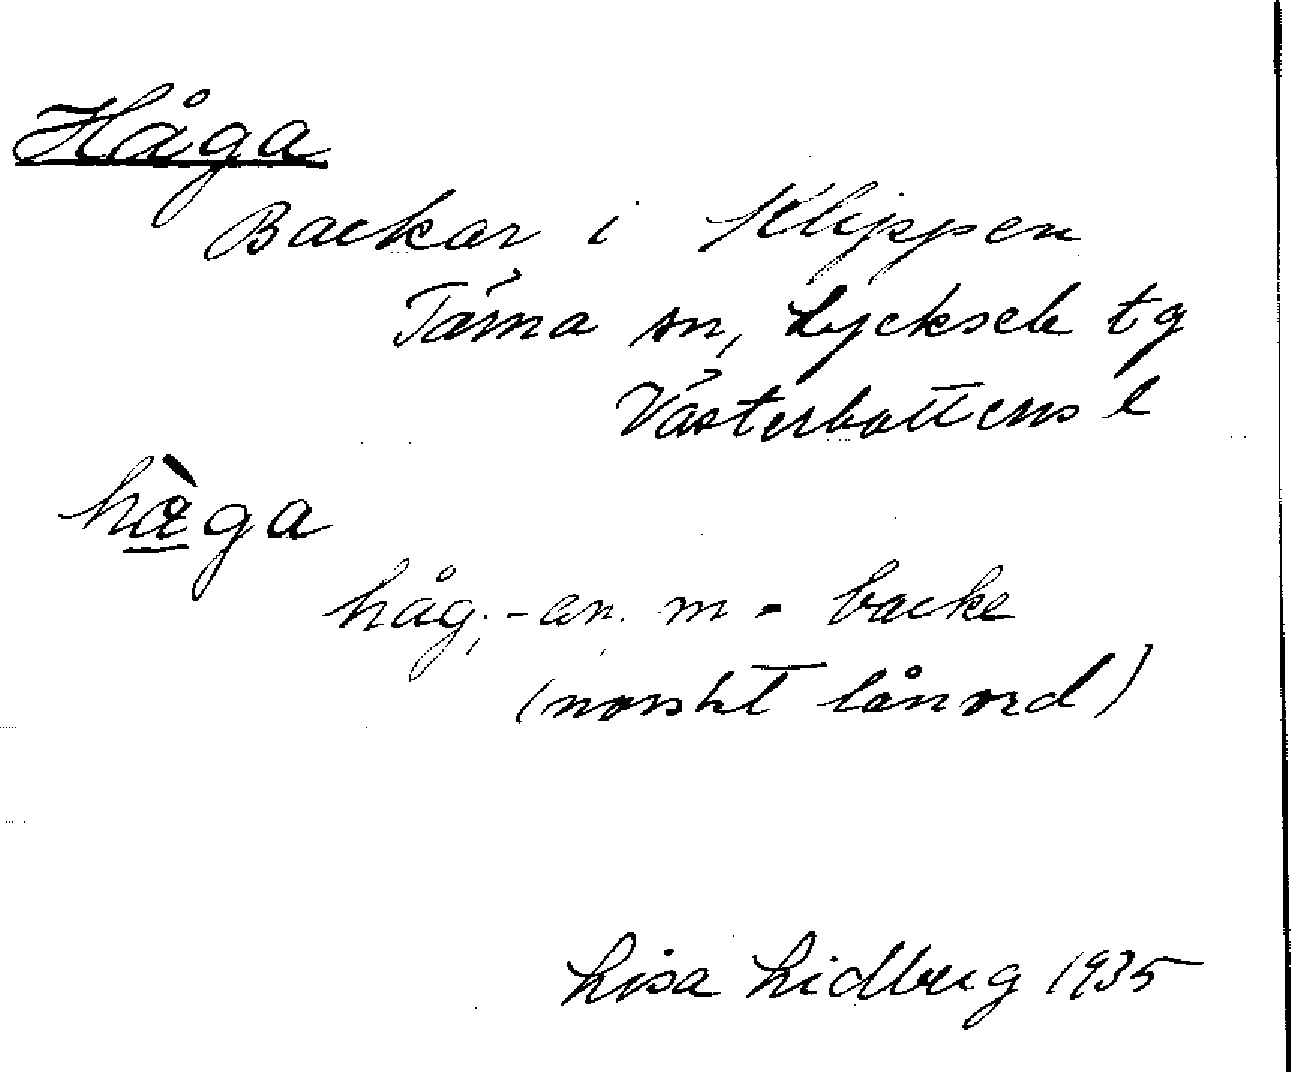 Håga
Backar i Klippen
Tärna sn, Lycksele tg
Västerbottens l
hæ̀ga
håg, -en, m = backe
(norskt lånord)
Lisa Lidberg 1935